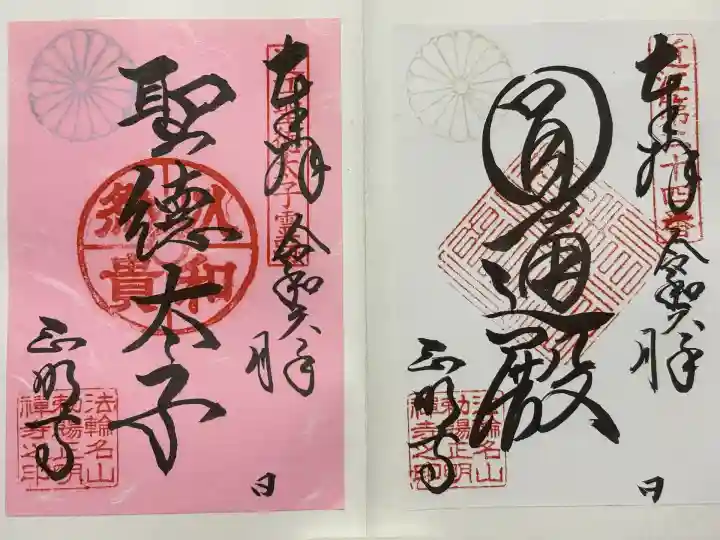 奉拝
令和六年
月
日
聖徳太子
以和為貴
正明寺
法輪名山
勅賜正明
禅寺之印
奉拝
令和六年
月
日
圓通殿
正明寺
法輪名山
勅賜正明
禅寺之印